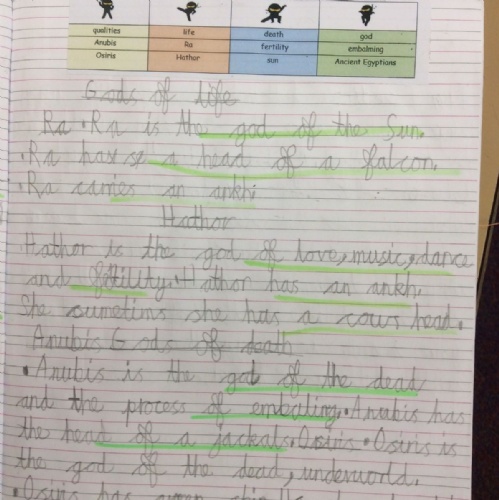 qualities life death god
Anubis Ra fertility embalming
Osiris Hathor sun Ancient Egyptians
Gods of life
Ra • Ra is the god of the Sun.
• Ra has a head of a falcon.
• Ra carries an ankh
Hathor
Hathor is the god of love, music, dance
and fertility. • Hathor has an ankh.
She sumetims she has a cows head.
Anubis Gods of death
• Anubis is the god of the dead
and the process of embaling. • Anubis has
the head of a jackals. Osiris • Osiris is
the god of the dead, underworld.
• Osiris has green skin